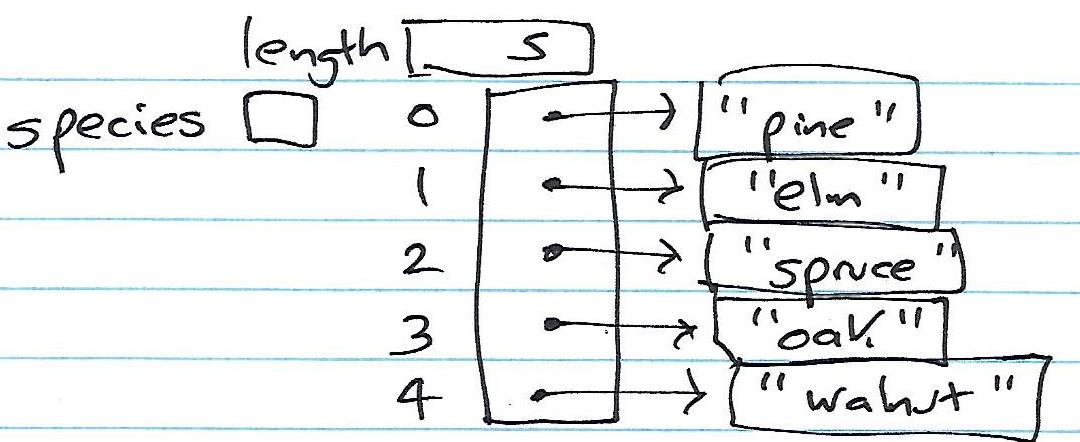 length 5
species 0 "pine"
1 "elm"
2 "spruce"
3 "oak"
4 "walnut"